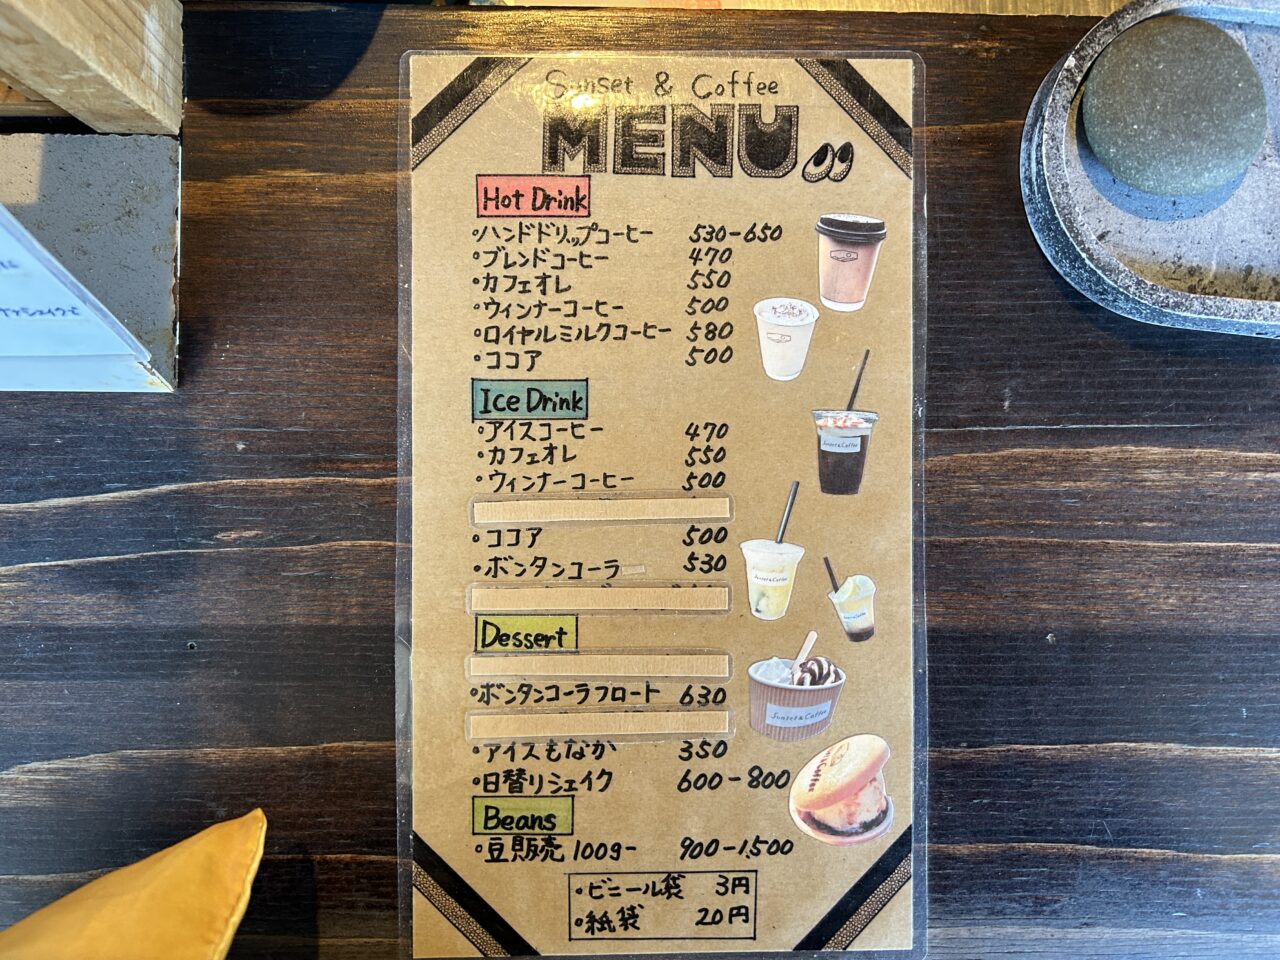 Sunset & Coffee
MENU
Hot Drink
・ハンドドリップコーヒー 530-650
・ブレンドコーヒー 470
・カフェオレ 550
・ウィンナーコーヒー 500
・ロイヤルミルクコーヒー 580
・ココア 500
Ice Drink
・アイスコーヒー 470
・カフェオレ 550
・ウィンナーコーヒー 500
・ココア 500
・ボンタンコーラ 530
Dessert
・ボンタンコーラフロート 630
・アイスもなか 350
・日替りシェイク 600-800
Beans
・豆販売 100g- 900-1,500
・ビニール袋 3円
・紙袋 20円
Sunset & Coffee
Sunset & Coffee
Sunset & Coffee
Sunset & Coffee